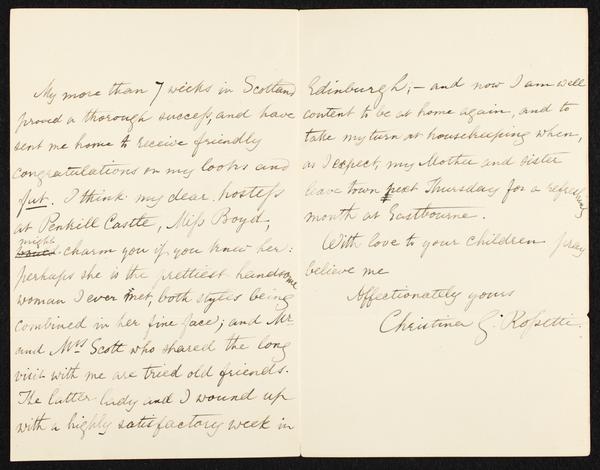 My more than 7 weeks in Scotland
proved a thorough success, and have
sent me home to receive friendly
congratulations on my looks and
fat. I think my dear hostess
at Penkill Castle, Miss Boyd,
might
charm you if you knew her:
perhaps she is the prettiest handsome
woman I ever met, both styles being
combined in her fine face; and Mr
and Mrs Scott who shared the long
visit with me are tried old friends.
The latter lady and I wound up
with a highly satisfactory week in
Edinburgh;- and now I am well
content to be at home again, and to
take my turn at housekeeping when,
as I expect, my Mother and sister
leave town next Thursday for a refreshing
month at Eastbourne.
With love to your children pray
believe me
Affectionately yours
Christina G. Rossetti.